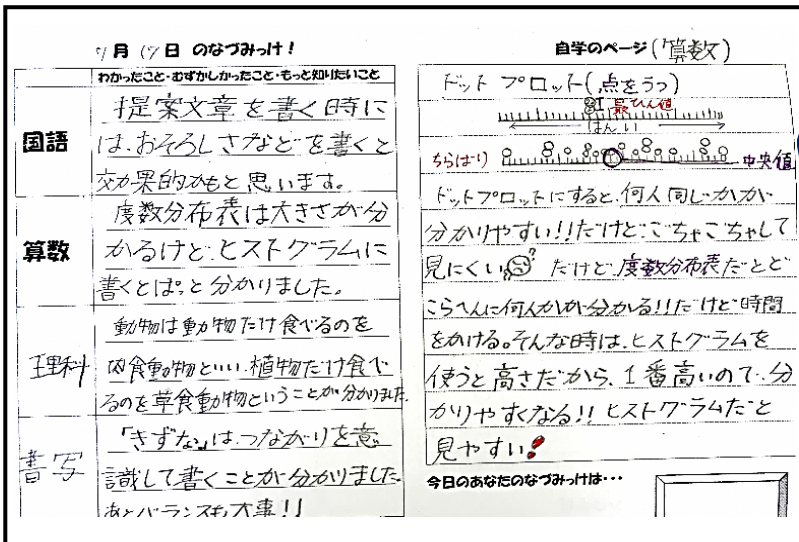 7月17日 のなづみっけ！
わかったこと・むずかしかったこと・もっと知りたいこと
国語
提案文章を書く時に
は、おそろしさなどを書くと
効果的かもと思います。
算数
度数分布表は大きさが分
かるけど、ヒストグラムに
書くとぱっと分かりました。
理科
動物は動物だけ食べるのを
肉食動物といい、植物だけ食べ
るのを草食動物ということが分かりました。
書写
「きずな」は、つながりを意
識して書くことが分かりました。
あとバランスも大事！！
自学のページ（算数）
ドットプロット（点をうつ）
最ひん値
はんい
ちらばり
中央値
ドットプロットにすると、何人同じかが
分かりやすい！！だけど、ごちゃごちゃして
見にくい だけど、度数分布表だとど
こらへんに何人かが分かる！！だけど時間
をかける。そんな時は、ヒストグラムを
使うと高さだから、1番高いので、分
かりやすくなる！！ヒストグラムだと
見やすい！
今日のあなたのなづみっけは・・・